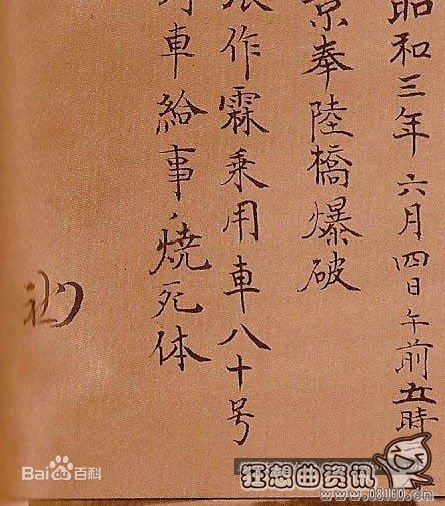 昭和三年六月四日午前五時
京奉陸橋爆破
張作霖乗用車八十号
列車給事、焼死体
Bai百科
狂想曲资讯
www.08160.cn